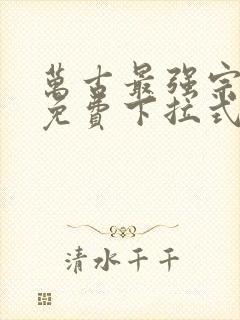 萬古最强宗
免費下拉式
清水千千